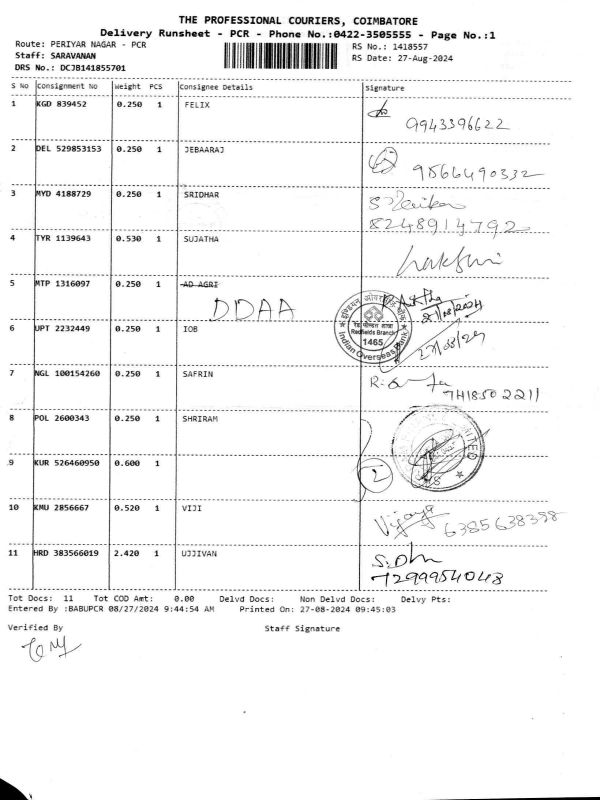 THE PROFESSIONAL COURIERS, COIMBATORE
Delivery Runsheet - PCR - Phone No.:0422-3505555 - Page No.:1
Route: PERIYAR NAGAR - PCR RS No.: 1418557
Staff: SARAVANAN RS Date: 27-Aug-2024
DRS No.: DCJB141855701
S No Consignment No Weight PCS Consignee Details Signature
1 KGD 839452 0.250 1 FELIX
9943396622
2 DEL 529853153 0.250 1 JEBAARAJ
9566490332
3 MYD 4188729 0.250 1 SRIDHAR
8248914792
4 TYR 1139643 0.530 1 SUJATHA
5 MTP 1316097 0.250 1 AD AGRI
DDAA
27/08/2024
6 UPT 2232449 0.250 1 IOB
इण्डियन ओवरसीज़ बैंक
रेड फील्ड्स शाखा
Redfields Branch
1465
Indian Overseas Bank
27/08/24
7 NGL 100154260 0.250 1 SAFRIN
7418502211
8 POL 2600343 0.250 1 SHRIRAM
9 KUR 526460950 0.600 1
2
10 KMU 2856667 0.520 1 VIJI
Vijaya 6385638398
11 HRD 383566019 2.420 1 UJJIVAN
7299954048
Tot Docs: 11 Tot COD Amt: 0.00 Delvd Docs: Non Delvd Docs: Delvy Pts:
Entered By :BABUPCR 08/27/2024 9:44:54 AM Printed On: 27-08-2024 09:45:03
Verified By Staff Signature